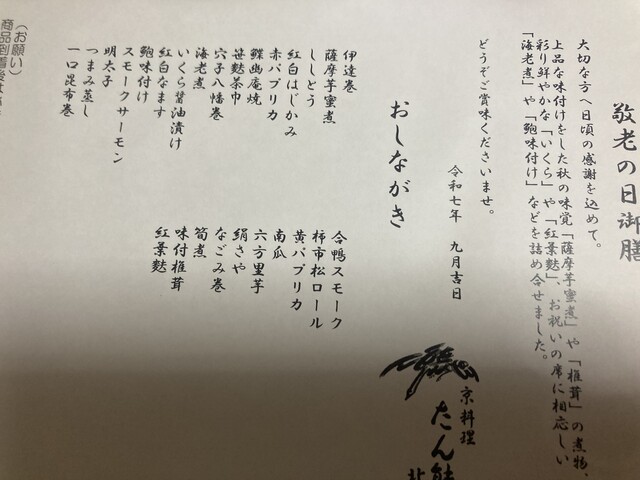 敬老の日御膳
大切な方へ日頃の感謝を込めて。
上品な味付けをした秋の味覚「薩摩芋蜜煮」や「椎茸」の煮物、
彩り鮮やかな「いくら」や「紅葉麩」、お祝いの席に相応しい
「海老煮」や「鮑味付け」などを詰め合せました。
どうぞご賞味くださいませ。
令和七年 九月吉日
京料理
たん熊
北
おしながき
伊達巻
薩摩芋蜜煮
ししとう
紅白はじかみ
赤パプリカ
鰈幽庵焼
笹麩茶巾
穴子八幡巻
海老煮
いくら醤油漬け
紅白なます
鮑味付け
スモークサーモン
明太子
つまみ蒸し
一口昆布巻
合鴨スモーク
柿市松ロール
黄パプリカ
南瓜
六方里芋
絹さや
なごみ巻
筍煮
味付椎茸
紅葉麩
(お願い)
商品到着後は